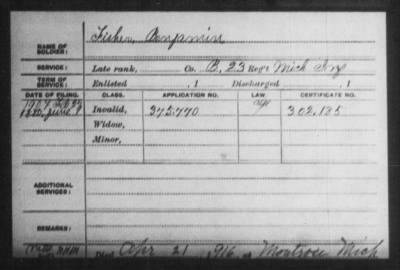 NAME OF SOLDIER: Fisher, Benjamin
SERVICE: Late rank, Co. B, 23 Reg't Mich Inf
TERM OF SERVICE: Enlisted , 1 Discharged , 1
DATE OF FILING. CLASS. APPLICATION NO. LAW. CERTIFICATE NO.
1880, June 8 Invalid, 373.770 302.185
Widow,
Minor,
ADDITIONAL SERVICES:
REMARKS:
Died Apr 21, 1916, at Montrose Mich